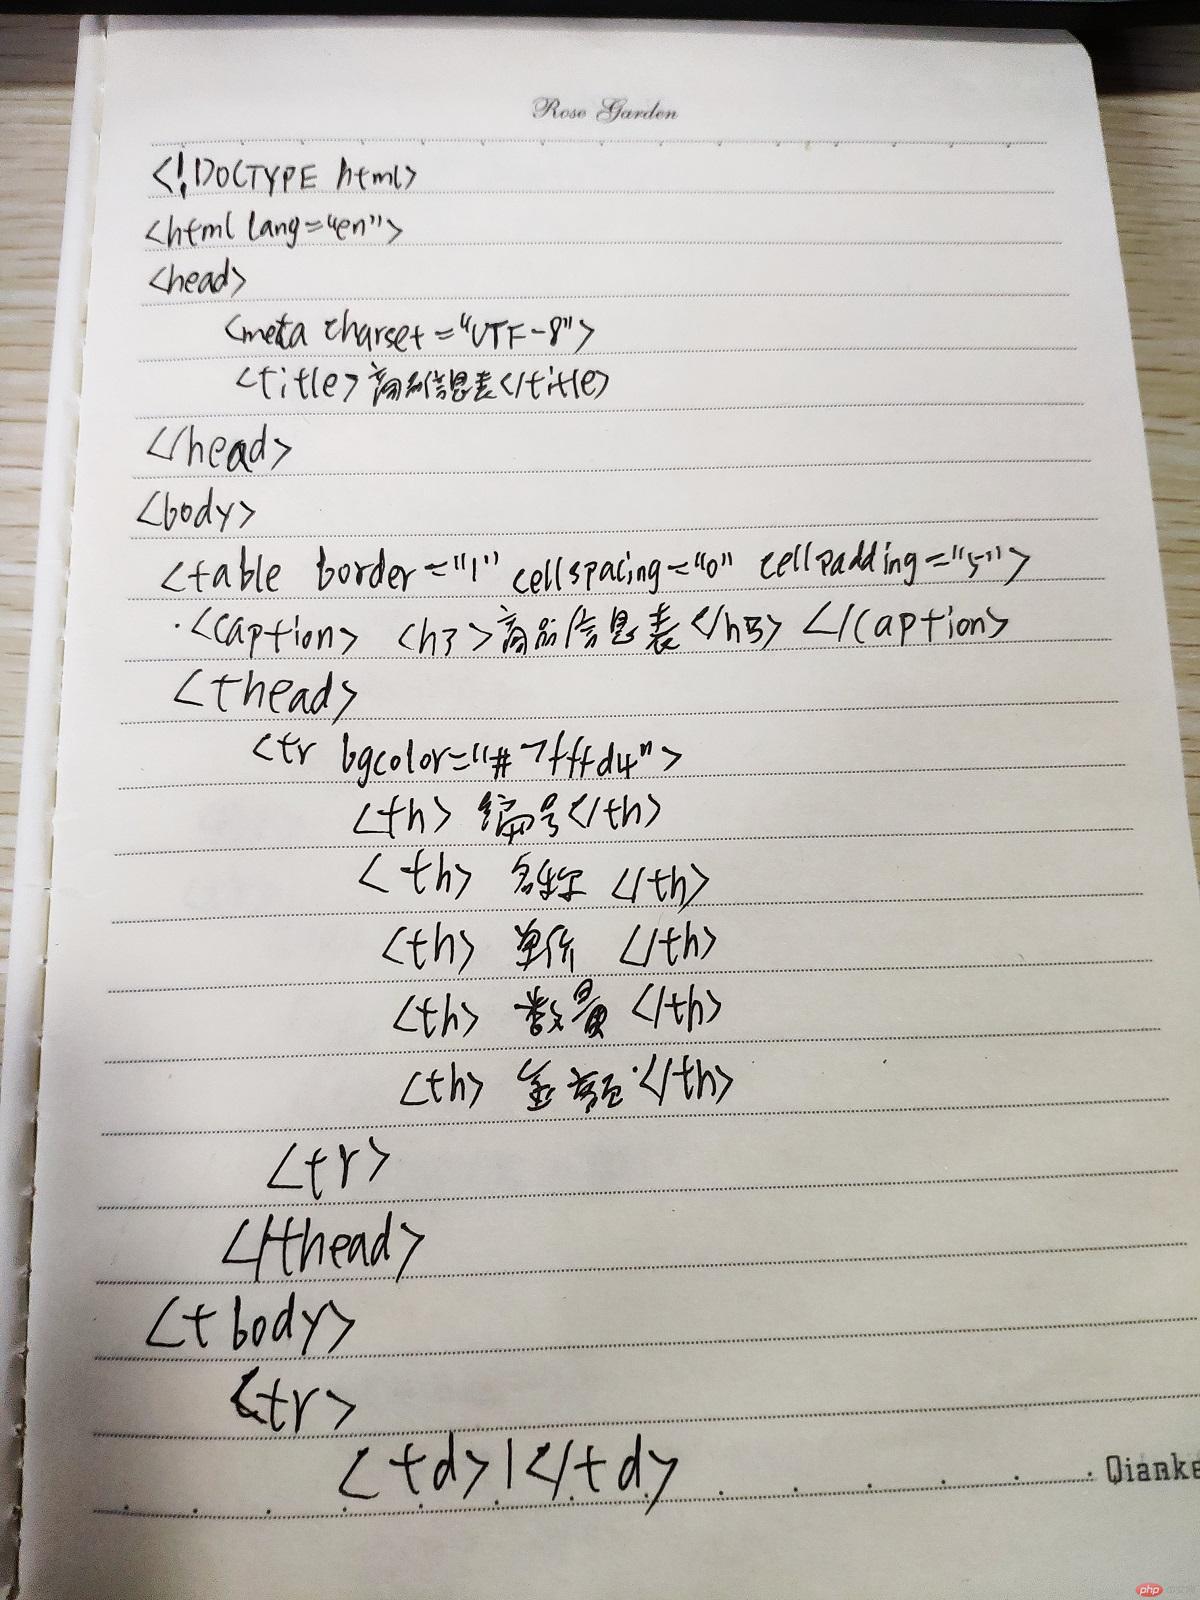 Rose Garden
<!DOCTYPE html>
<html lang="en">
<head>
<meta charset="UTF-8">
<title>商品信息表</title>
</head>
<body>
<table border="1" cellspacing="0" cellpadding="5">
<caption> <h3>商品信息表</h3> </caption>
<thead>
<tr bgcolor="#7fffd4">
<th> 编号</th>
<th> 名称 </th>
<th> 单价 </th>
<th> 数量 </th>
<th> 金额</th>
<tr>
</thead>
<tbody>
<tr>
<td>1</td>
Qianke
php